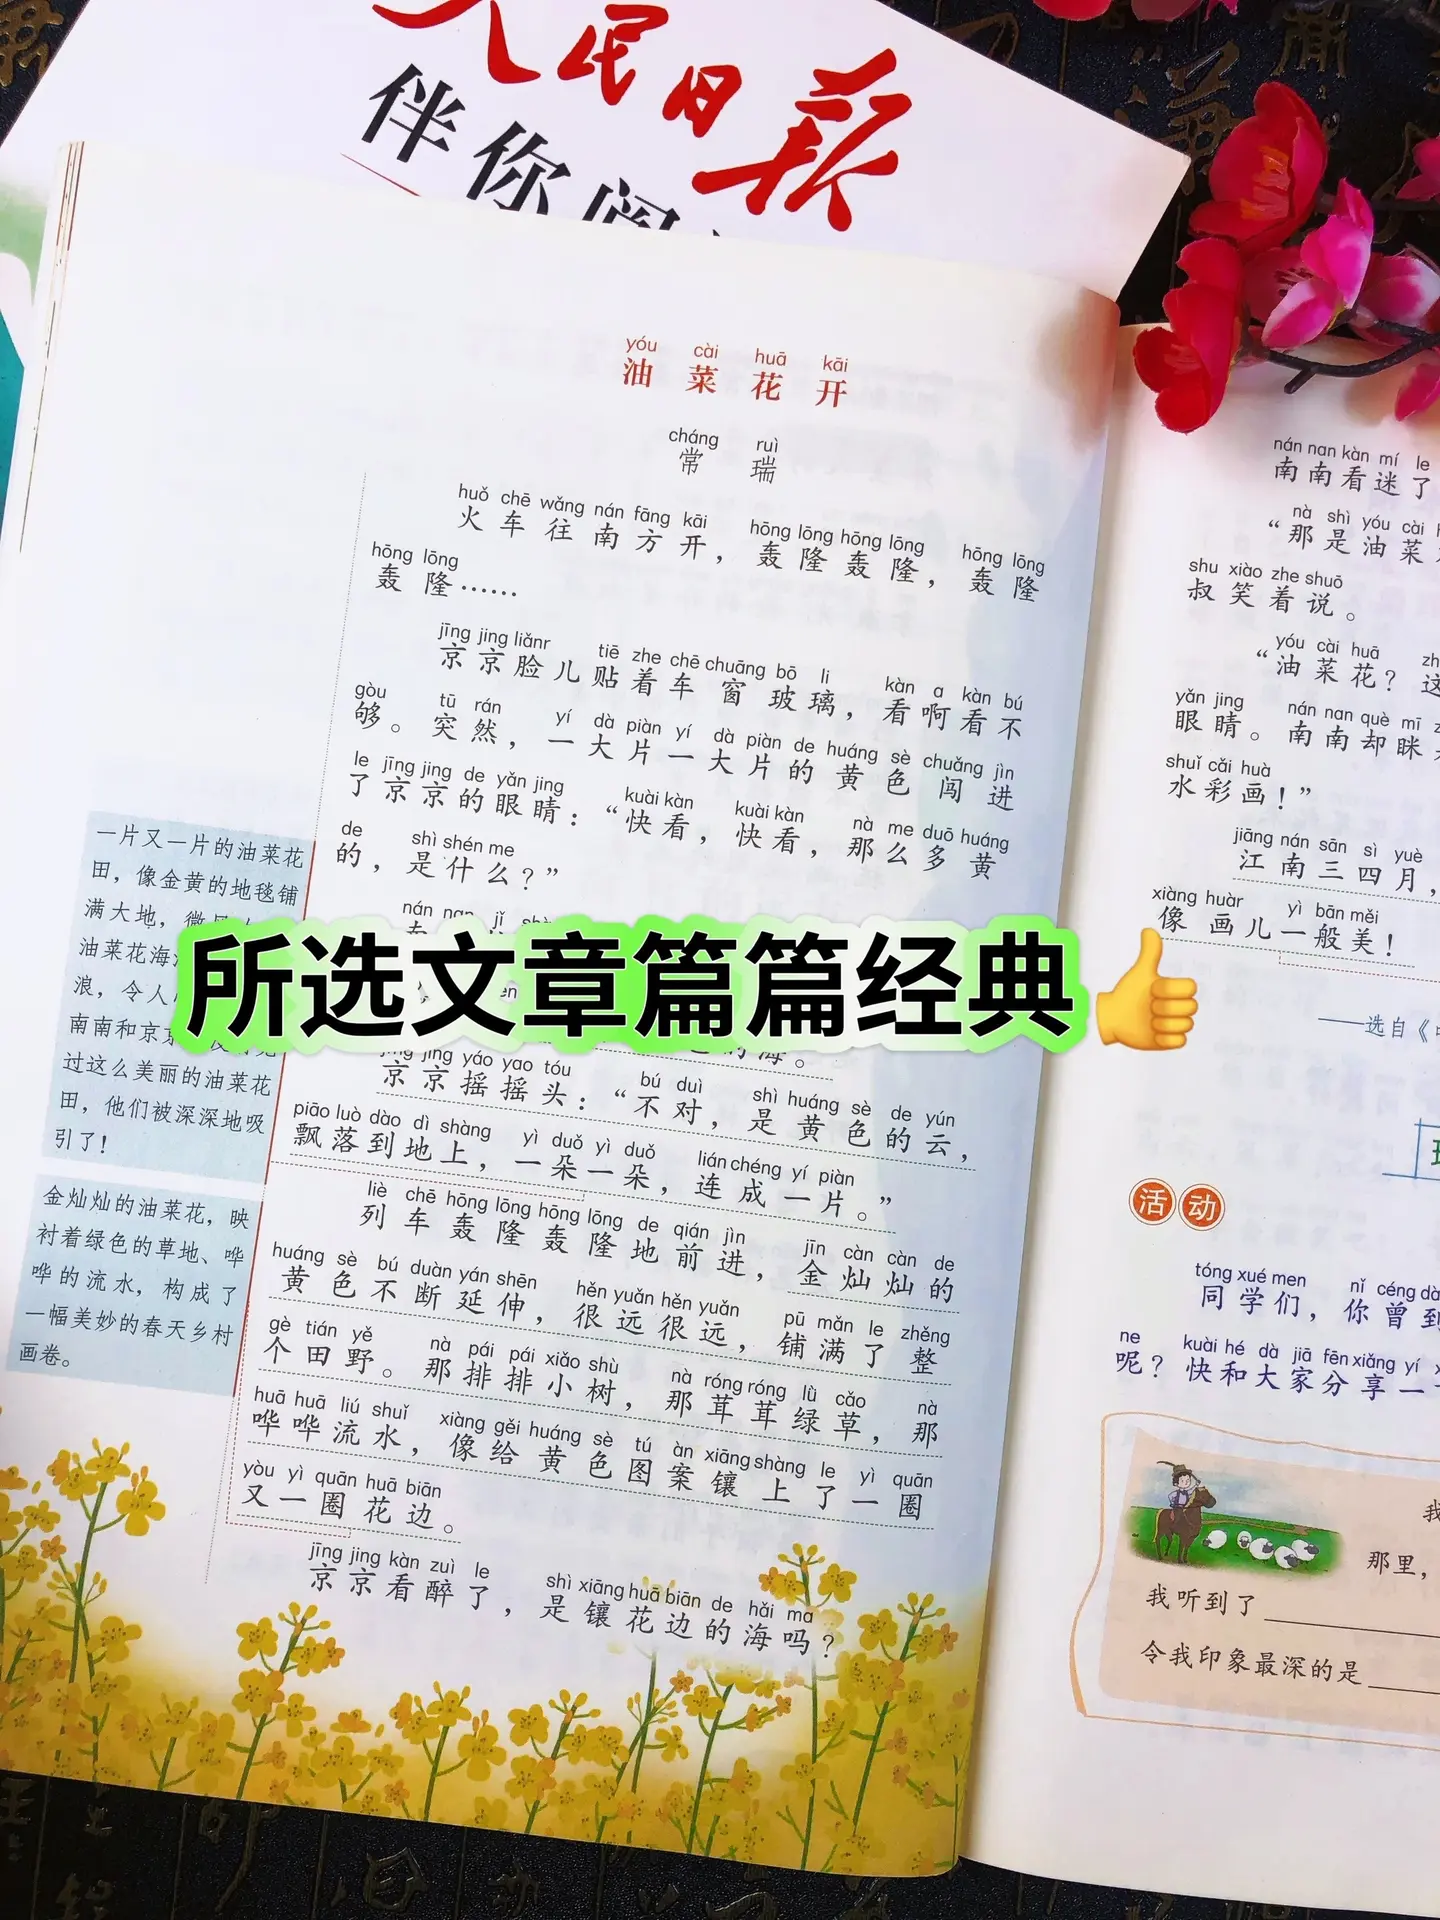 人民日报
伴你阅
yóu cài huā kāi
油菜花开
cháng ruì
常瑞
huǒ chē wǎng nán fāng kāi hōng lōng hōng lōng hōng lōng
火车往南方开，轰隆轰隆，轰隆
hōng lōng
轰隆……
jīng jing liǎnr tiē zhe chē chuāng bō li kàn a kàn bú
京京脸儿贴着车窗玻璃，看啊看不
gòu tū rán yí dà piàn yí dà piàn de huáng sè chuǎng jìn
够。突然，一大片一大片的黄色闯进
le jīng jing de yǎn jing kuài kàn kuài kàn nà me duō huáng
了京京的眼睛：“快看，快看，那么多黄
de shì shén me
的，是什么？”
nán nan jǐ
海。
jīng jing yáo yao tóu bú duì shì huáng sè de yún
京京摇摇头：“不对，是黄色的云，
piāo luò dào dì shàng yì duǒ yì duǒ lián chéng yí piàn
飘落到地上，一朵一朵，连成一片。”
liè chē hōng lōng hōng lōng de qián jìn jīn càn càn de
列车轰隆轰隆地前进，金灿灿的
huáng sè bú duàn yán shēn hěn yuǎn hěn yuǎn pū mǎn le zhěng
黄色不断延伸，很远很远，铺满了整
gè tián yě nà pái pái xiǎo shù nà róng róng lù cǎo nà
个田野。那排排小树，那茸茸绿草，那
huā huā liú shuǐ xiàng gěi huáng sè tú àn xiāng shàng le yì quān
哗哗流水，像给黄色图案镶上了一圈
yòu yì quān huā biān
又一圈花边。
jīng jing kàn zuì le shì xiāng huā biān de hǎi ma
京京看醉了，是镶花边的海吗？
一片又一片的油菜花
田，像金黄的地毯铺
满大地，微风
油菜花海
浪，令人
南南和京京
过这么美丽的油菜花
田，他们被深深地吸
引了！
金灿灿的油菜花，映
衬着绿色的草地、哗
哗的流水，构成了
一幅美妙的春天乡村
画卷。
所选文章篇篇经典👍
nán nan kàn mí le
南南看迷了
nà shì yóu cài
“那是油菜
shu xiào zhe shuō
叔笑着说。
yóu cài huā
“油菜花？这
yǎn jing nán nan què mī
眼睛。南南却眯
shuǐ cǎi huà
水彩画！”
jiāng nán sān sì yuè
江南三四月，
xiàng huàr yì bān měi
像画儿一般美！
——选自《
活动
tóng xué men nǐ céng dà
同学们，你曾到
ne kuài hé dà jiā fēn xiǎng yí
呢？快和大家分享一
我
那里，
我听到了
令我印象最深的是